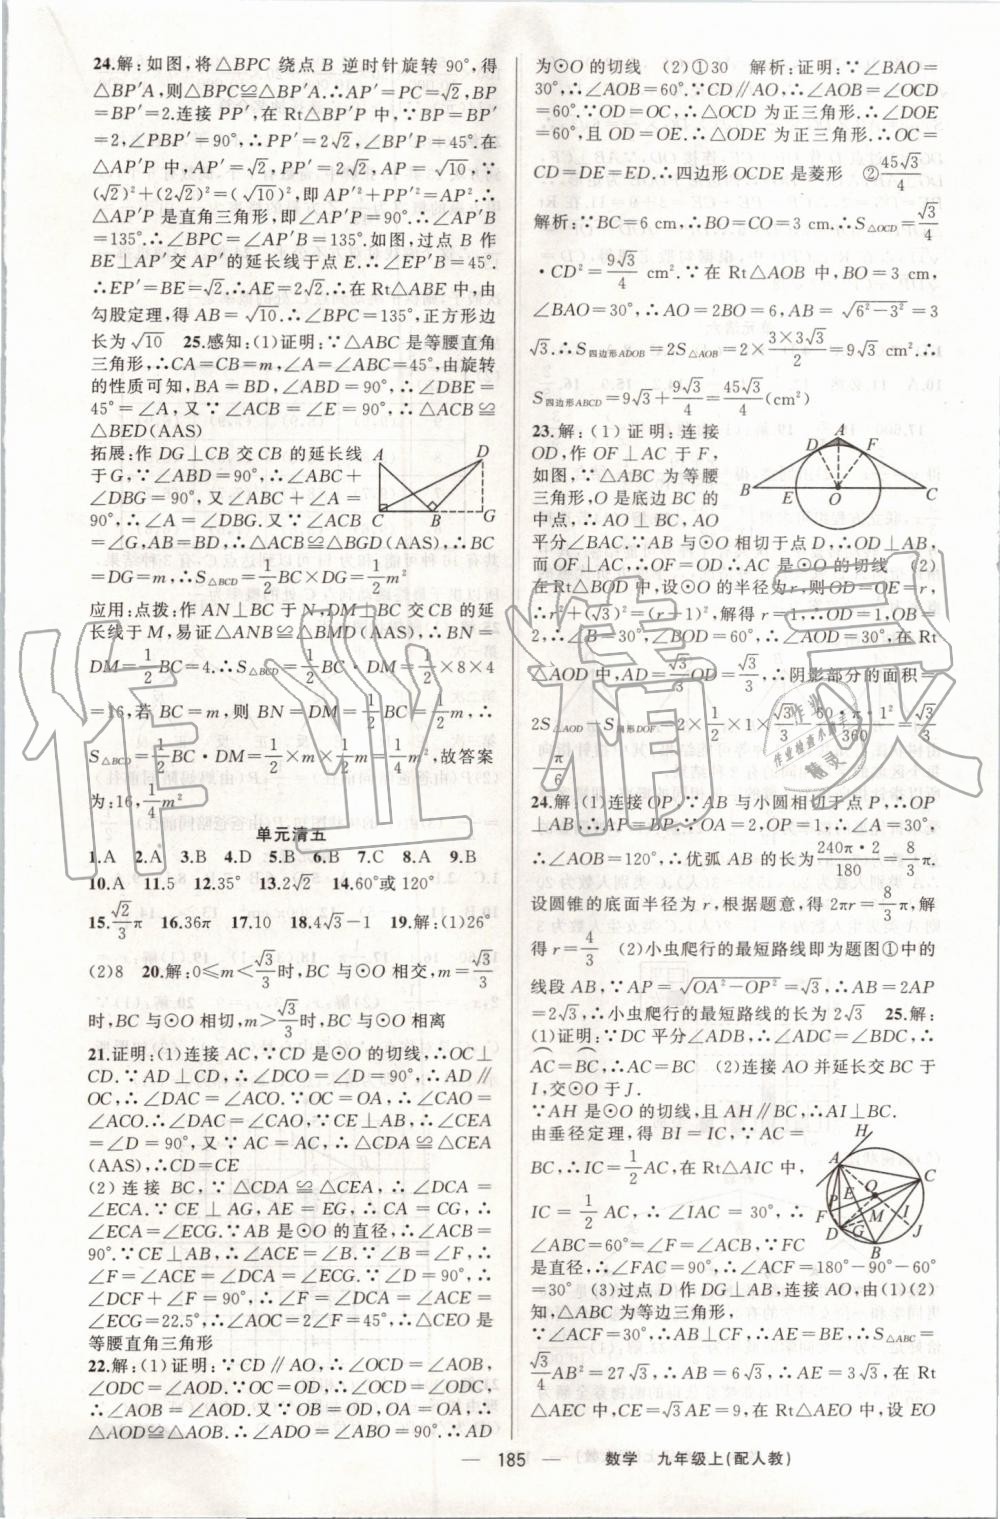 24.解:如图,将△BPC 绕点 B 逆时针旋转 90°,得
△BP′A,则△BPC≌△BP′A.∴AP′=PC=√2,BP
=BP′=2.连接 PP′,在 Rt△BP′P 中,∵BP=BP′
=2,∠PBP′=90°,∴PP′=2√2,∠BP′P=45°.在
△AP′P 中,AP′=√2,PP′=2√2,AP=√10,∵
(√2)²+(2√2)²=(√10)²,即AP′²+PP′²=AP².∴
△AP′P 是直角三角形,即∠AP′P=90°.∴∠AP′B
=135°.∴∠BPC=∠AP′B=135°.如图,过点 B 作
BE⊥AP′交 AP′的延长线于点 E.∴∠EP′B=45°.
∴EP′=BE=√2.∴AE=2√2.∴在 Rt△ABE 中,由
勾股定理,得 AB=√10.∴∠BPC=135°,正方形边
长为√10 25.感知:(1)证明:∵△ABC 是等腰直角
三角形,∴CA=CB=m,∠A=∠ABC=45°,由旋转
的性质可知,BA=BD,∠ABD=90°,∴∠DBE=
45°=∠A,又∵∠ACB=∠E=90°,∴△ACB≌
△BED(AAS)
拓展:作 DG⊥CB 交 CB 的延长线
于 G,∵∠ABD=90°,∴∠ABC+
∠DBG=90°,又∠ABC+∠A=
90°,∴∠A=∠DBG.又∵∠ACB
=∠G,AB=BD,∴△ACB≌△BGD(AAS),∴BC
=DG=m,∴S△BCD=1/2BC·DG=1/2m²
应用:点拨:作 AN⊥BC 于 N,DM⊥BC 交 CB 的延
长线于 M,易证△ANB≌△BMD(AAS),∴BN=
DM=1/2BC=4.∴S△BCD=1/2BC·DM=1/2×8×4
=16,若 BC=m,则 BN=DM=1/2BC=1/2m,∴
S△BCD=1/2BC·DM=1/2×m×1/2m=1/4m²,故答案
为:16,1/4m²
单元清五
1.A 2.A 3.B 4.D 5.B 6.B 7.C 8.A 9.B
10.A 11.5 12.35° 13.2√2 14.60°或 120°
15.√2/3π 16.36π 17.10 18.4√3-1 19.解:(1)26°
(2)8 20.解:0≤m<√3/3时,BC 与⊙O 相交,m=√3/3
时,BC 与⊙O 相切,m>√3/3时,BC 与⊙O 相离
21.证明:(1)连接 AC,∵CD 是⊙O 的切线,∴OC⊥
CD.∵AD⊥CD,∴∠DCO=∠D=90°,∴AD∥
OC,∴∠DAC=∠ACO.∵OC=OA,∴∠CAO=
∠ACO.∴∠DAC=∠CAO,∵CE⊥AB,∴∠CEA
=∠D=90°,又∵AC=AC,∴△CDA≌△CEA
(AAS),∴CD=CE
(2)连接 BC,∵△CDA≌△CEA,∴∠DCA=
∠ECA.∵CE⊥AG,AE=EG,∴CA=CG,∴
∠ECA=∠ECG.∵AB 是⊙O 的直径,∴∠ACB=
90°.∵CE⊥AB,∴∠ACE=∠B.∵∠B=∠F,∴
∠F=∠ACE=∠DCA=∠ECG.∵∠D=90°,∴
∠DCF+∠F=90°,∴∠F=∠DCA=∠ACE=
∠ECG=22.5°,∴∠AOC=2∠F=45°,∴△CEO 是
等腰直角三角形
22.解:(1)证明:∵CD∥AO,∴∠OCD=∠AOB,
∠ODC=∠AOD.∵OC=OD,∴∠OCD=∠ODC,
∴∠AOB=∠AOD.又∵OB=OD,OA=OA,∴
△AOD≌△AOB(SAS).∴∠ADO=∠ABO=90°.∴AD
为⊙O 的切线 (2)①30 解析:证明:∵∠BAO=
30°,∴∠AOB=60°.∵CD∥AO,∴∠AOB=∠OCD
=60°.∵OD=OC,∴△OCD 为正三角形.∴∠DOE
=60°,且 OD=OE.∴△ODE 为正三角形.∴OC=
CD=DE=ED.∴四边形 OCDE 是菱形 ②45√3/4
解析:∵BC=6 cm,∴BO=CO=3 cm,∴S△OCD=√3/4
·CD²=9√3/4 cm².∵在 Rt△AOB 中,BO=3 cm,
∠BAO=30°,∴AO=2BO=6,AB=√(6²-3²)=3
√3.∴S四边形ADOB=2S△AOB=2×(3×3√3)/2=9√3 cm².∴
S四边形ABCD=9√3+9√3/4=45√3/4(cm²)
23.解:(1)证明:连接
OD,作 OF⊥AC 于 F,
如图,∵△ABC 为等腰
三角形,O 是底边 BC 的
中点,∴AO⊥BC,AO
平分∠BAC.∵AB 与⊙O 相切于点 D,∴OD⊥AB,
而 OF⊥AC,∴OF=OD.∴AC 是⊙O 的切线 (2)
在 Rt△BOD 中,设⊙O 的半径为 r,则 OD=OE=r,
∴r²+(√3)²=(r+1)²,解得 r=1,∴OD=1,OB=
2,∴∠B=30°,∠BOD=60°,∴∠AOD=30°,在 Rt
△AOD 中,AD=√3/3OD=√3/3,∴阴影部分的面积=
2S△AOD-S扇形DOF=2×1/2×1×√3/3-60·π·1²/360=√3/3
-π/6
24.解:(1)连接OP,∵AB 与小圆相切于点 P,∴OP
⊥AB,∴AP=BP.∵OA=2,OP=1,∴∠A=30°,
∴∠AOB=120°,∴优弧 AB 的长为240π·2/180=8/3π.
设圆锥的底面半径为 r,根据题意,得 2πr=8/3π,解
得 r=4/3 (2)小虫爬行的最短路线即为题图①中的
线段 AB,∵AP=√(OA²-OP²)=√3,∴AB=2AP
=2√3,∴小虫爬行的最短路线的长为 2√3 25.解:
(1)证明:∵DC 平分∠ADB,∴∠ADC=∠BDC,∴
AC=BC,∴AC=BC (2)连接 AO 并延长交 BC 于
I,交⊙O 于 J.
∵AH 是⊙O 的切线,且 AH∥BC,∴AI⊥BC.
由垂径定理,得 BI=IC,∵AC=
BC,∴IC=1/2AC,在 Rt△AIC 中,
IC=1/2AC,∴∠IAC=30°,∴
∠ABC=60°=∠F=∠ACB.∵FC
是直径,∴∠FAC=90°,∴∠ACF=180°-90°-60°
=30° (3)过点 D 作 DG⊥AB,连接 AO,由(1)(2)
知,△ABC 为等边三角形,
∵∠ACF=30°,∴AB⊥CF,∴AE=BE,∴S△ABC=
√3/4AB²=27√3,∴AB=6√3,∴AE=3√3,在 Rt
△AEC 中,CE=√3AE=9,在 Rt△AEO 中,设 EO
A D C B G
A D F B E O C
H A C E O P F M I D G J B
作业精灵
— 185 — 数学 九年级上(配人教)